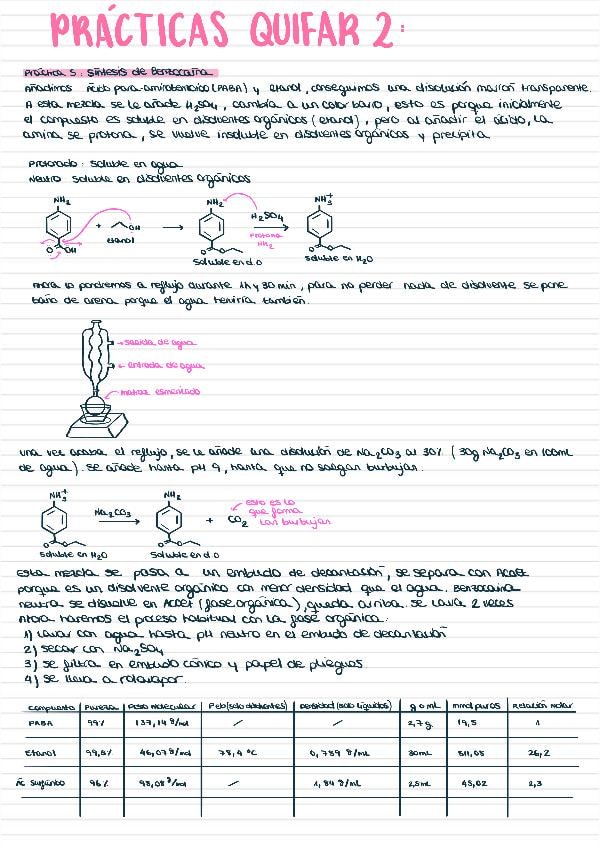 PRÁCTICAS QUIFAR 2:
Práctica 5: Síntesis de Benzocaína
Añadimos Ácido para-aminobenzoico (PABA) y etanol, conseguimos una disolución marrón transparente.
A esta mezcla se le añade H₂SO₄, cambia a un color, esto es porque inicialmente
el compuesto es soluble en disolventes orgánicos (etanol), pero al añadir el ácido, la
amina se protona, se vuelve insoluble en disolventes orgánicos y precipita.
Protonado: soluble en agua
Neutro soluble en disolventes orgánicos
NH₂ NH₂ NH₃⁺
+ OH H₂SO₄
etanol Protona
NH₂
O OH O O
soluble en d.o soluble en H₂O
Ahora lo pondremos a reflujo durante 1h y 30 min, para no perder nada de disolvente se pone
baño de arena porque el agua herviría también.
salida de agua
entrada de agua
matraz esmerilado
una vez acaba el reflujo, se le añade una disolución de Na₂CO₃ al 30% (30g Na₂CO₃ en 100mL
de agua). Se añade hasta pH 9, hasta que no salgan burbujas.
NH₃⁺ NH₂
Na₂CO₃ + CO₂ esto es lo
que forma
las burbujas
O O
soluble en H₂O soluble en d.o
Esta mezcla se pasa a un embudo de decantación, se separa con AcOEt
porque es un disolvente orgánico con menor densidad que el agua. Benzocaína
neutra se disuelve en AcOEt (fase orgánica), queda arriba. Se lava 2 veces
Ahora haremos el proceso habitual con la fase orgánica:
1) Lavar con agua hasta pH neutro en el embudo de decantación
2) secar con Na₂SO₄
3) se filtra en embudo cónico y papel de pliegues
4) se lleva a rotavapor.
Compuesto Pureza Peso molecular P.eb (solo disolventes) Densidad (solo líquidos) g o mL mmol puros Relación molar
PABA 99% 137,14 g/mol / / 2,7 g 19,5 1
Etanol 99,5% 46,07 g/mol 78,4 ºC 0,789 g/mL 30mL 511,05 26,2
Ác Sulfúrico 96% 98,08 g/mol / 1,84 g/mL 2,5mL 45,02 2,3